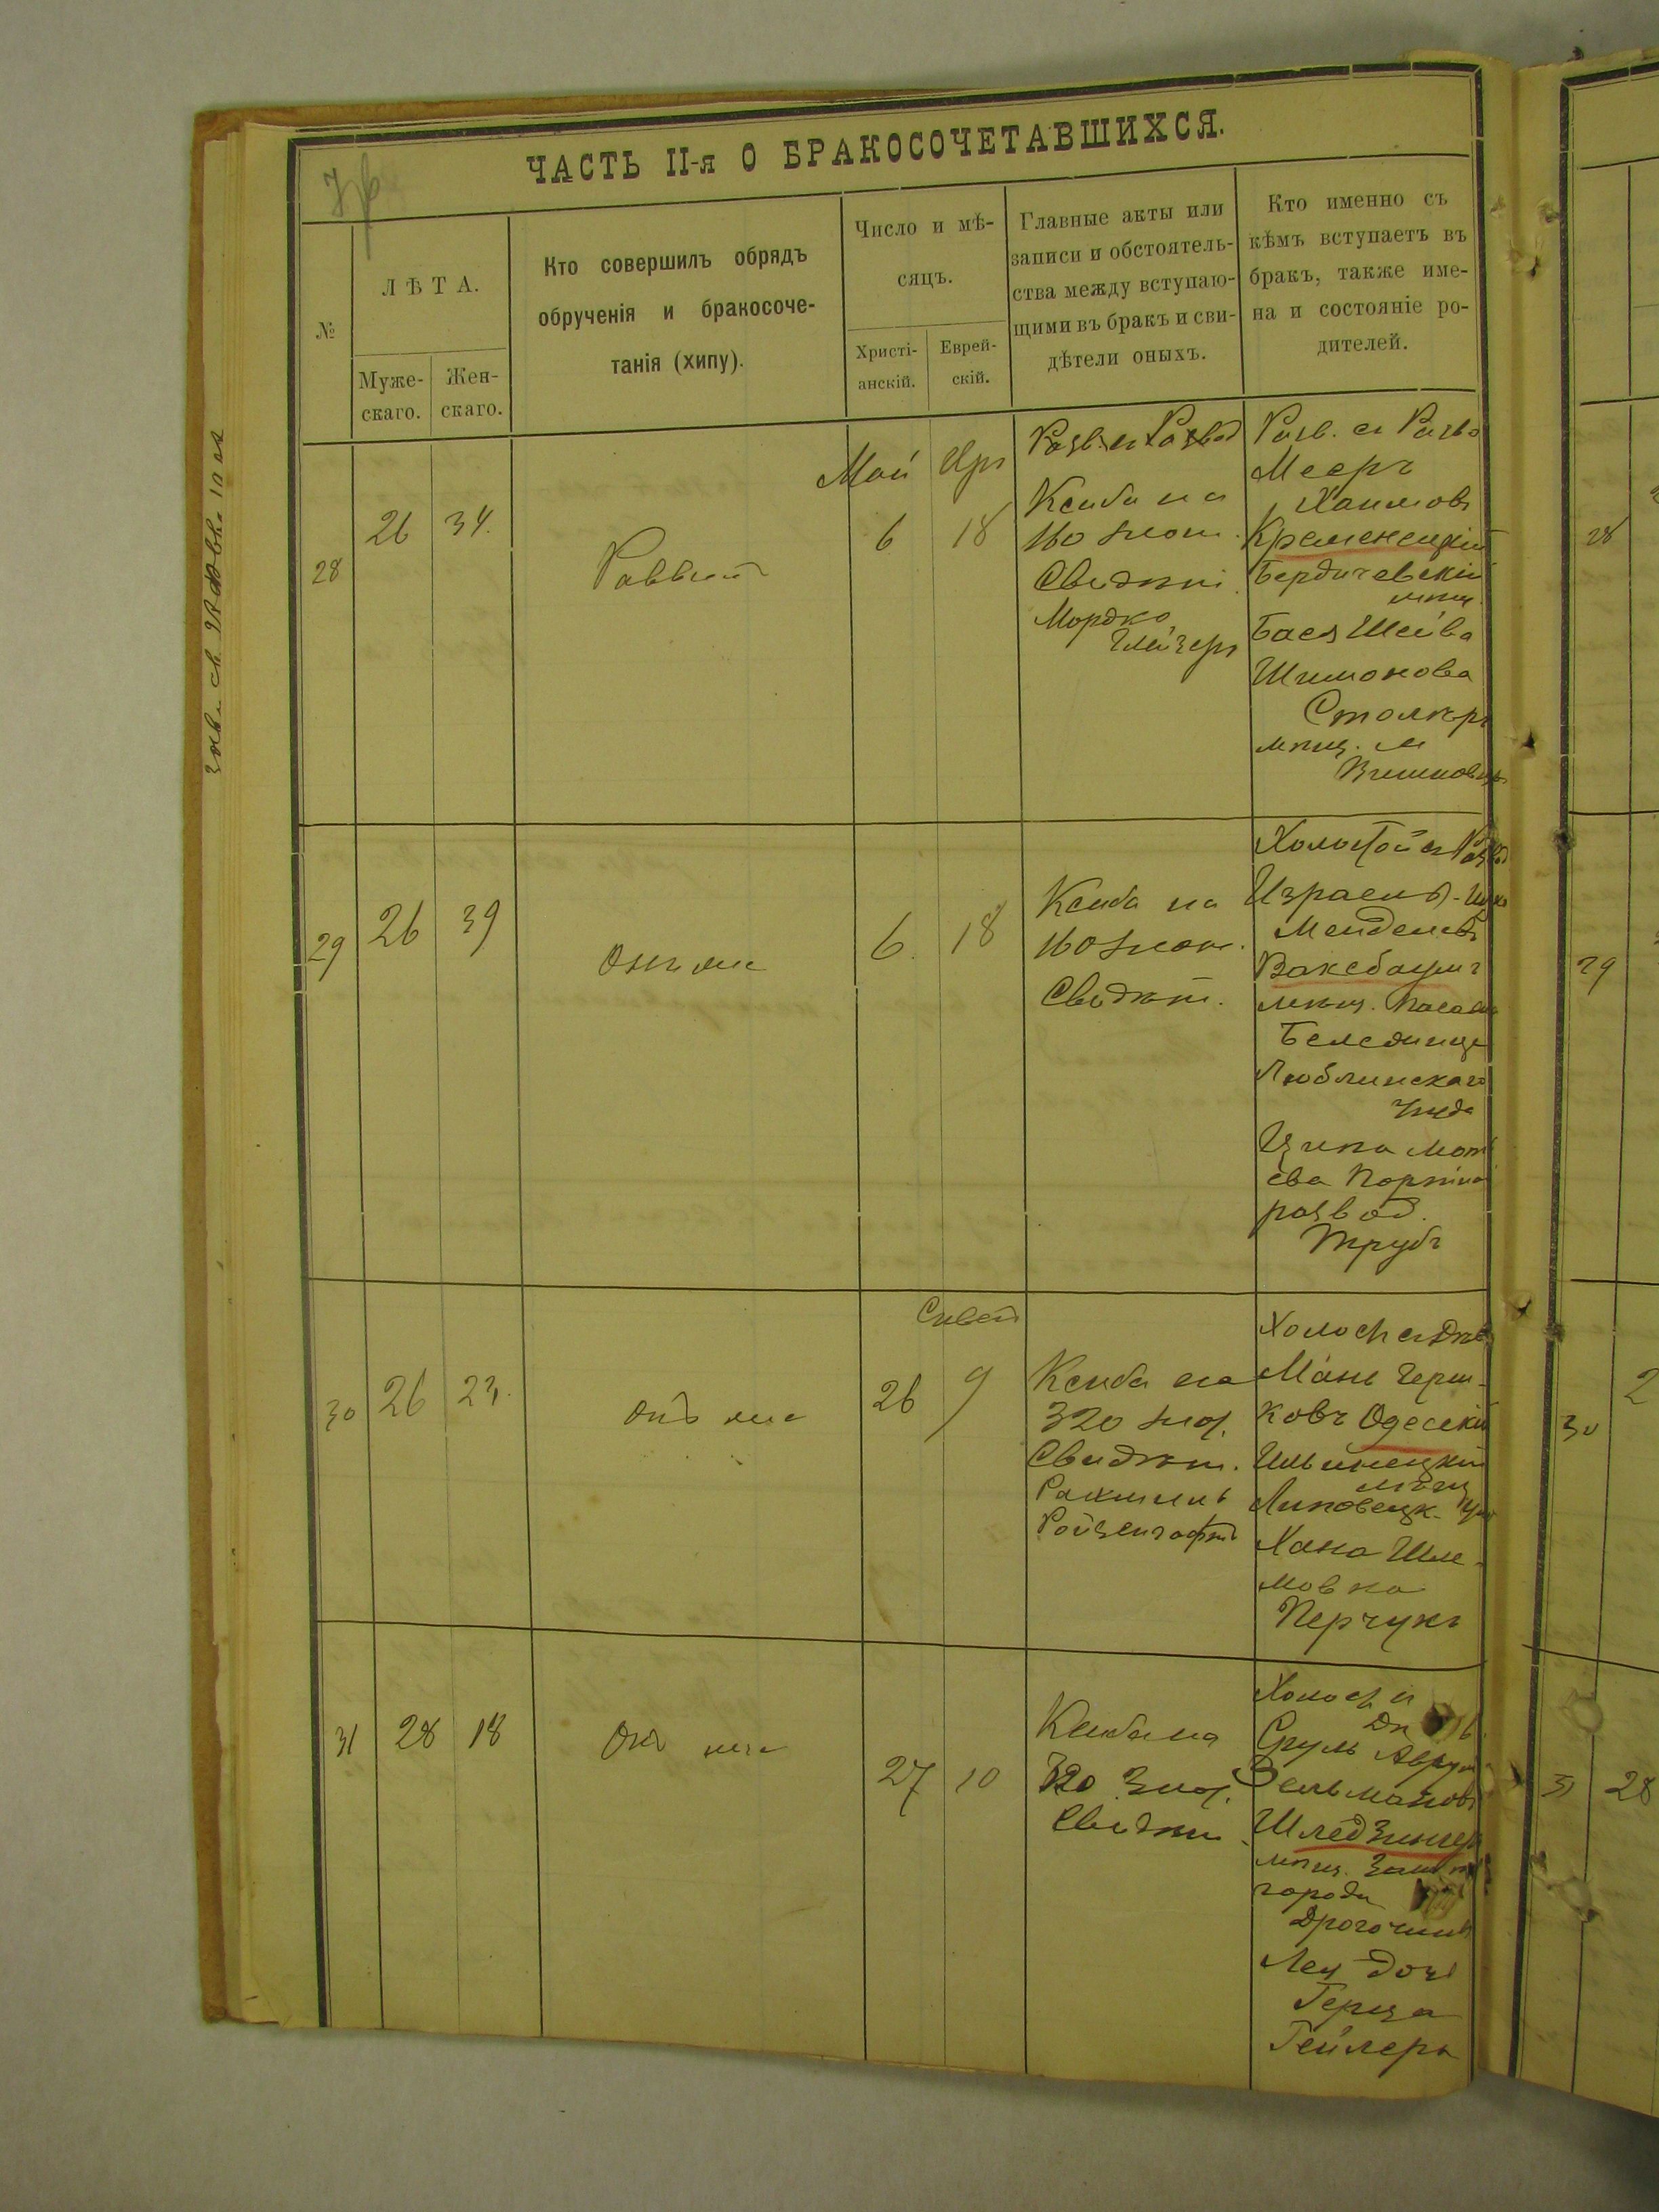 ЧАСТЬ II-я О БРАКОСОЧЕТАВШИХСЯ.
№
ЛѢТА.
Муже-
скаго.
Жен-
скаго.
Кто совершилъ обрядъ
обрученія и бракосоче-
танія (хипу).
Число и мѣ-
сяцъ.
Христі-
анскій.
Еврей-
скій.
Главные акты или
записи и обстоятель-
ства между вступаю-
щими въ бракъ и сви-
дѣтели оныхъ.
Кто именно съ
кѣмъ вступаетъ въ
бракъ, также име-
на и состояніе ро-
дителей.
28
26
34.
Раввинъ
Май
6
Іяръ
18
Разв. съ Развод
Ксиба на
160 злот.
Свидѣт.
Мордко
Глейзеръ
Разв. съ Разво
Мееръ
Хаимовъ
Кременецкій
Бердичевскій
мѣщ.
Бася Шейва
Шимонова
Столяръ
мѣщ. м
29
26
39
Онъ же
6.
18
Ксиба на
160 злот.
Свидѣт.
Холостой съ Развод
Израель-
Менделевъ
Ваксбаумъ
мѣщ. Посада
Люблинскаго
Ципа Мот
ева
развод.
30
26
23.
Онъ же
26
Сивонъ
9
Ксиба на
320 злот.
Свидѣт.
Рахмиль
Холост съ Дѣв
Мань Герш-
ковъ Одесскій
Ильинецкій
мѣщ
Липовецк. у
Хана Шле-
мовна
Перчукъ
31
28
18
Онъ же
27
10
Ксиба на
320 злот.
Свидѣт.
Холост съ
Дѣ в.
Сруль Аврум
Зельмановъ
Шледзингер
мѣщ.
города
Дрогочинъ
Лея дочь
Герца
Гейлеръ
28
29
30
2
31
28